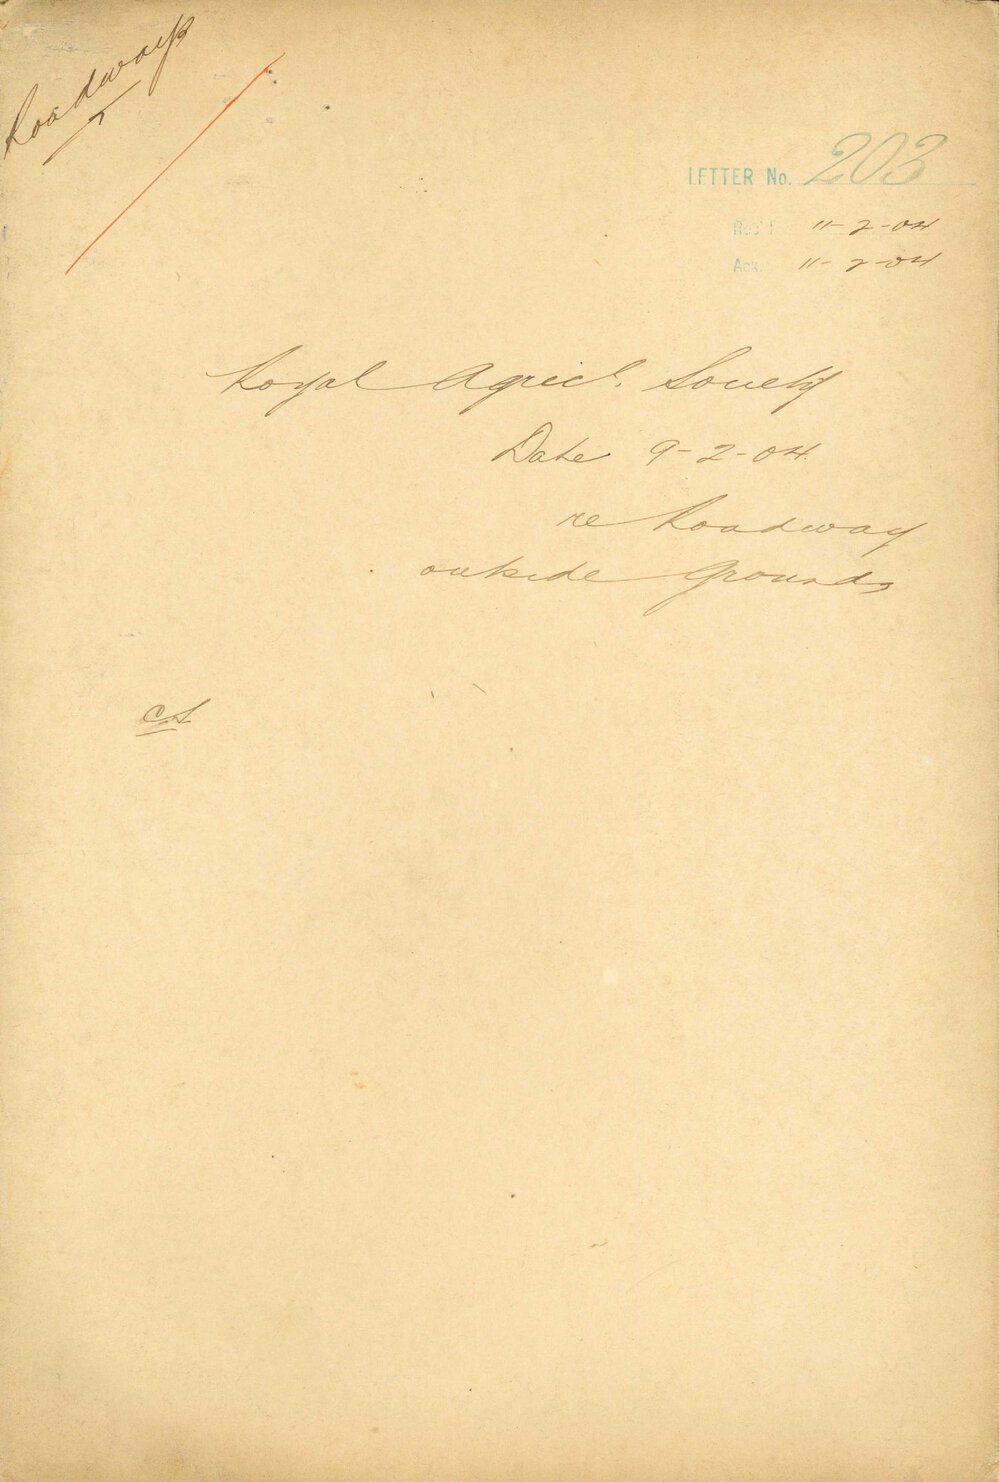 Roadways
LETTER No. 203
Rec'd 11-2-04
Ack. 11-2-04
Royal Agricl. Society
Date 9-2-04
re Roadway
outside Grounds